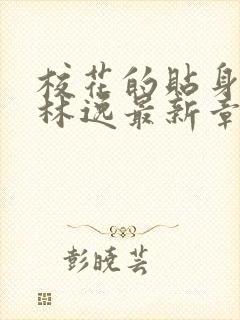 校花的贴身
林逸最新章
彭晓芸